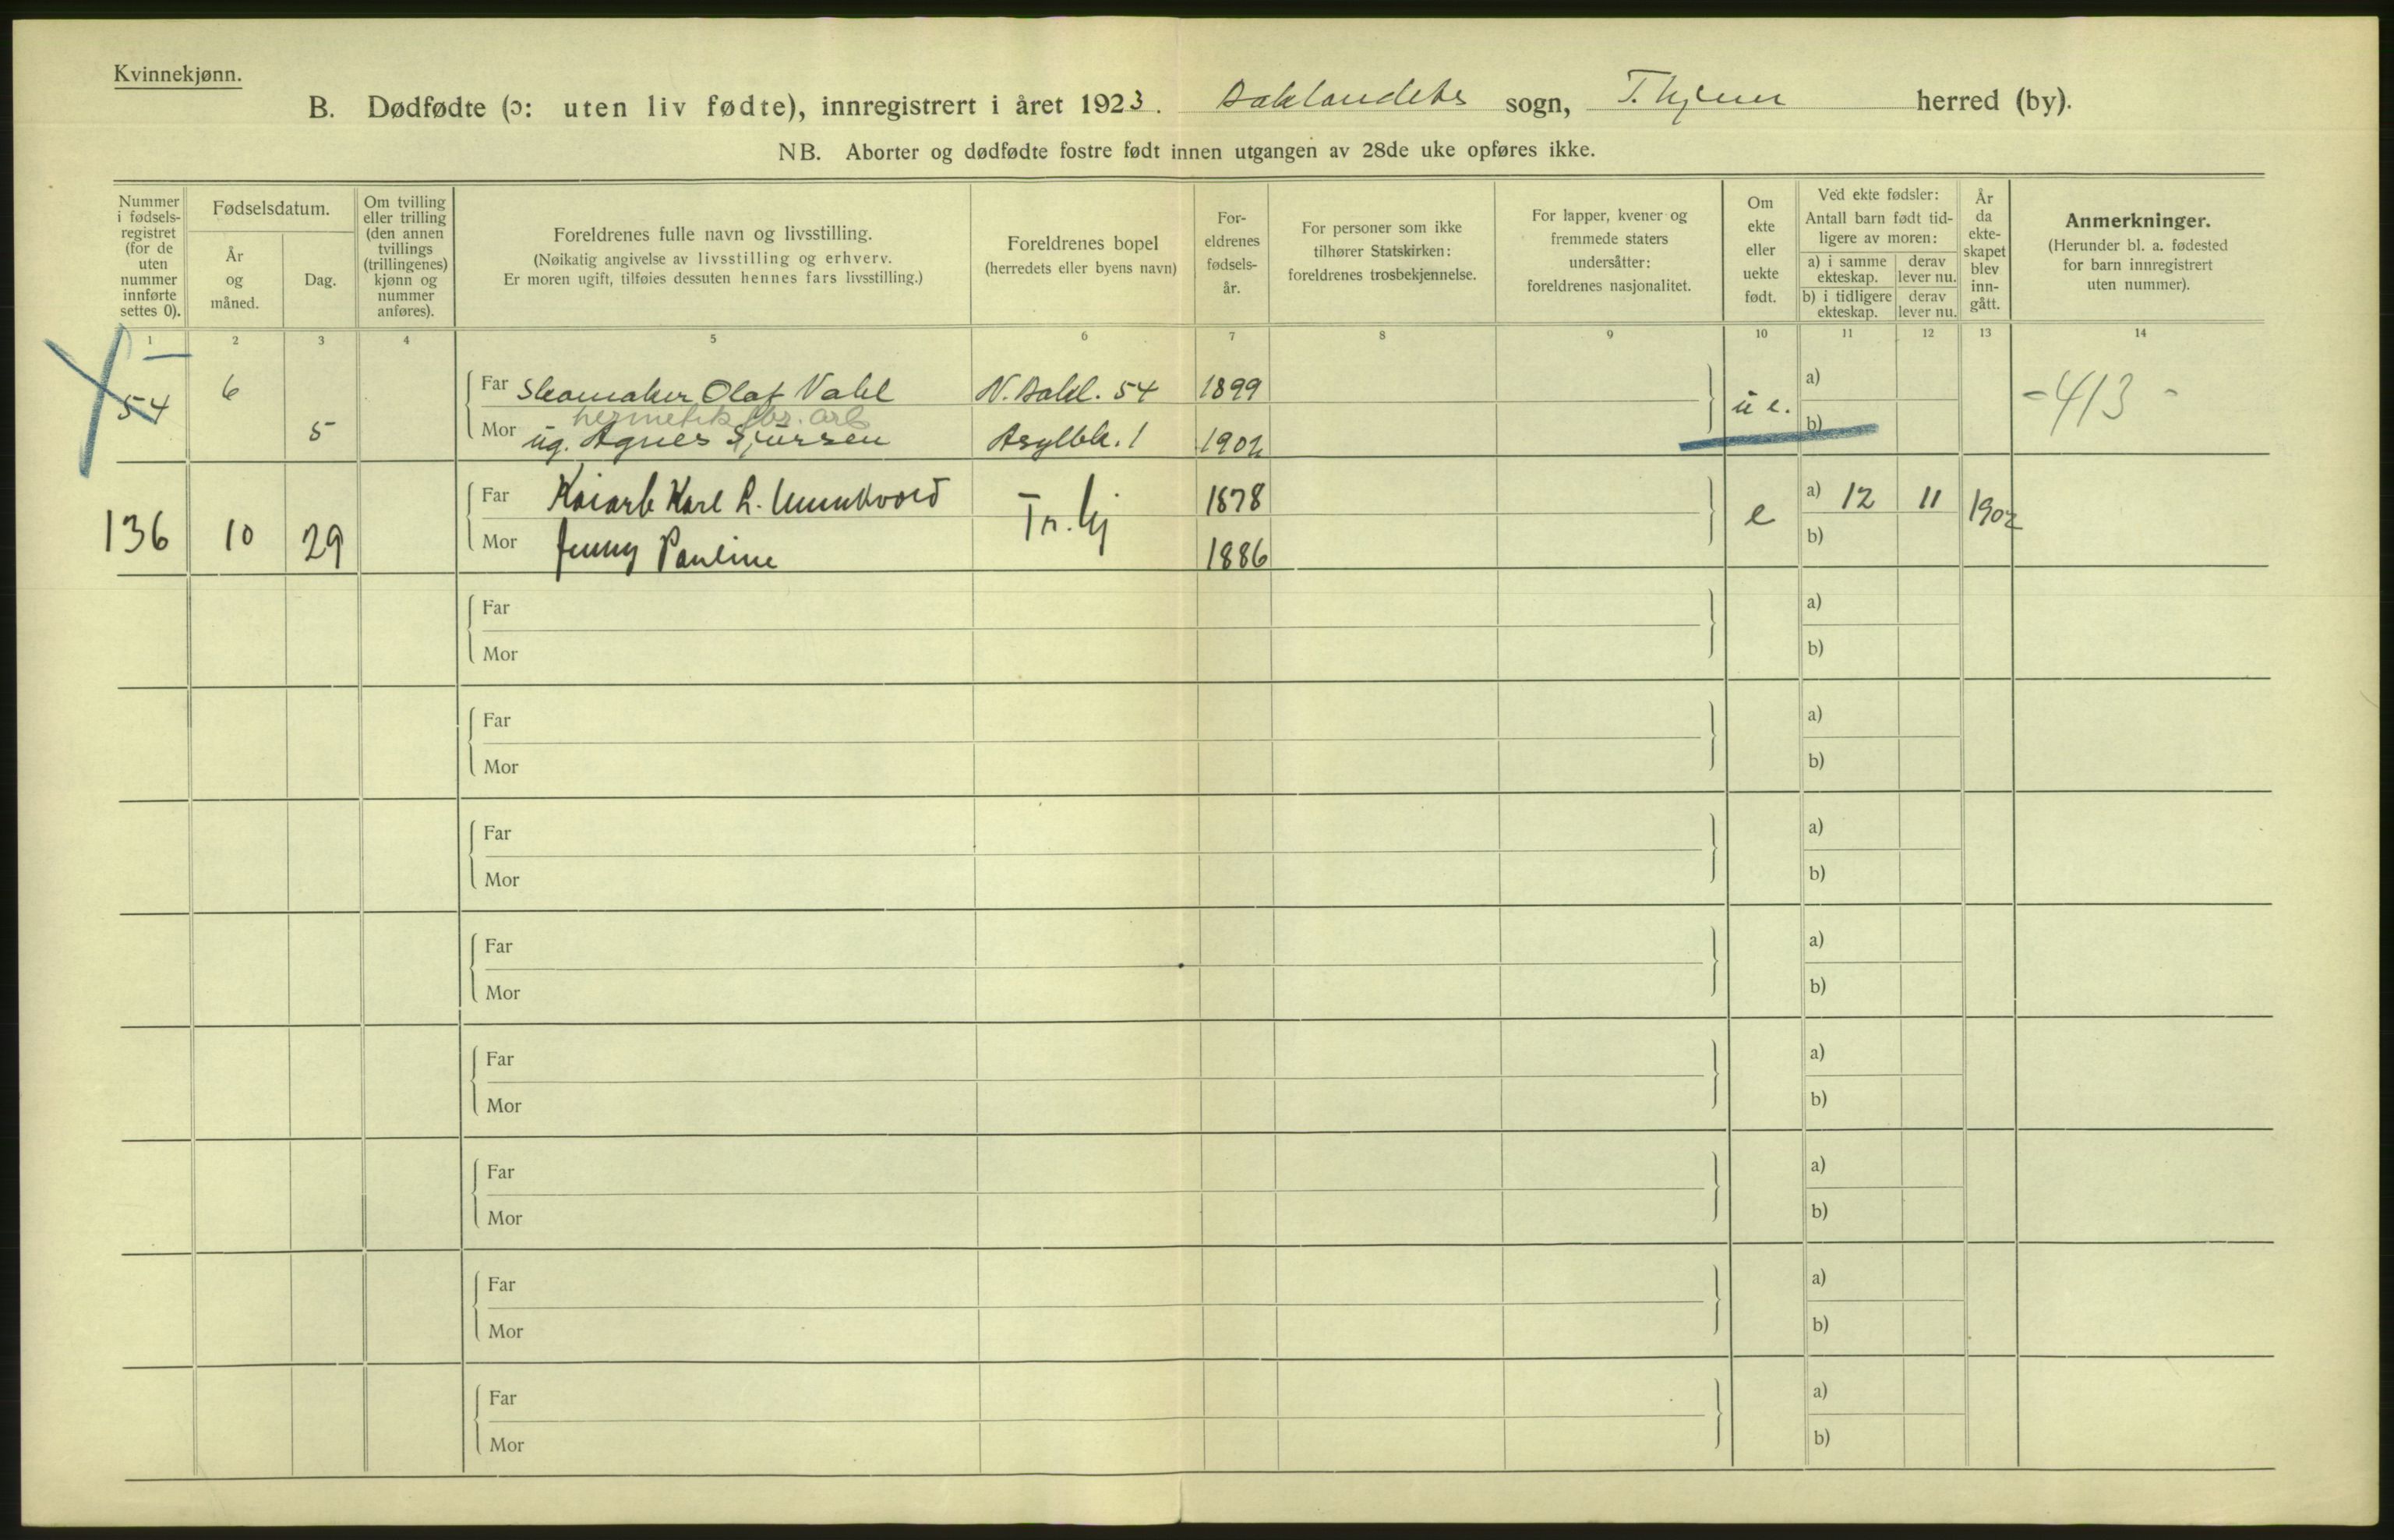 Kvinnekjønn.
B. Dødfødte (ɔ: uten liv fødte), innregistrert i året 1923. Baklandets sogn, T.hjem herred (by).
NB. Aborter og dødfødte fostre født innen utgangen av 28de uke opføres ikke.
Nummer i fødsels-registret (for de uten nummer innførte settes 0).
Fødselsdatum.
År og måned.
Dag.
Om tvilling eller trilling (den annen tvillings (trillingenes) kjønn og nummer anføres).
Foreldrenes fulle navn og livsstilling.
(Nøikatig angivelse av livsstilling og erhverv.
Er moren ugift, tilføies dessuten hennes fars livsstilling.)
Foreldrenes bopel
(herredets eller byens navn)
For-eldrenes fødsels-år.
For personer som ikke tilhører Statskirken: foreldrenes trosbekjennelse.
For lapper, kvener og fremmede staters undersåtter: foreldrenes nasjonalitet.
Om ekte eller uekte født.
Ved ekte fødsler:
Antall barn født tid-ligere av moren:
a) i samme ekteskap.
derav lever nu.
b) i tidligere ekteskap.
derav lever nu.
År da ekte-skapet blev inn-gått.
Anmerkninger.
(Herunder bl. a. fødested for barn innregistrert uten nummer).
1 2 3 4 5 6 7 8 9 10 11 12 13 14
54 6 5 Far Skomaker Olaf Vahl N. Bakl. 54 1899 u e. a) -413-
hermetikfbr. arb
Mor ug. Agnes Sjursen Asylbk. 1 1902 b)
136 10 29 Far Kaiarb Karl L. Munkvold Tr.hj 1878 e a) 12 11 1902
Mor Jenny Pauline 1886 b)
Far a)
Mor b)
Far a)
Mor b)
Far a)
Mor b)
Far a)
Mor b)
Far a)
Mor b)
Far a)
Mor b)
Far a)
Mor b)
Far a)
Mor b)